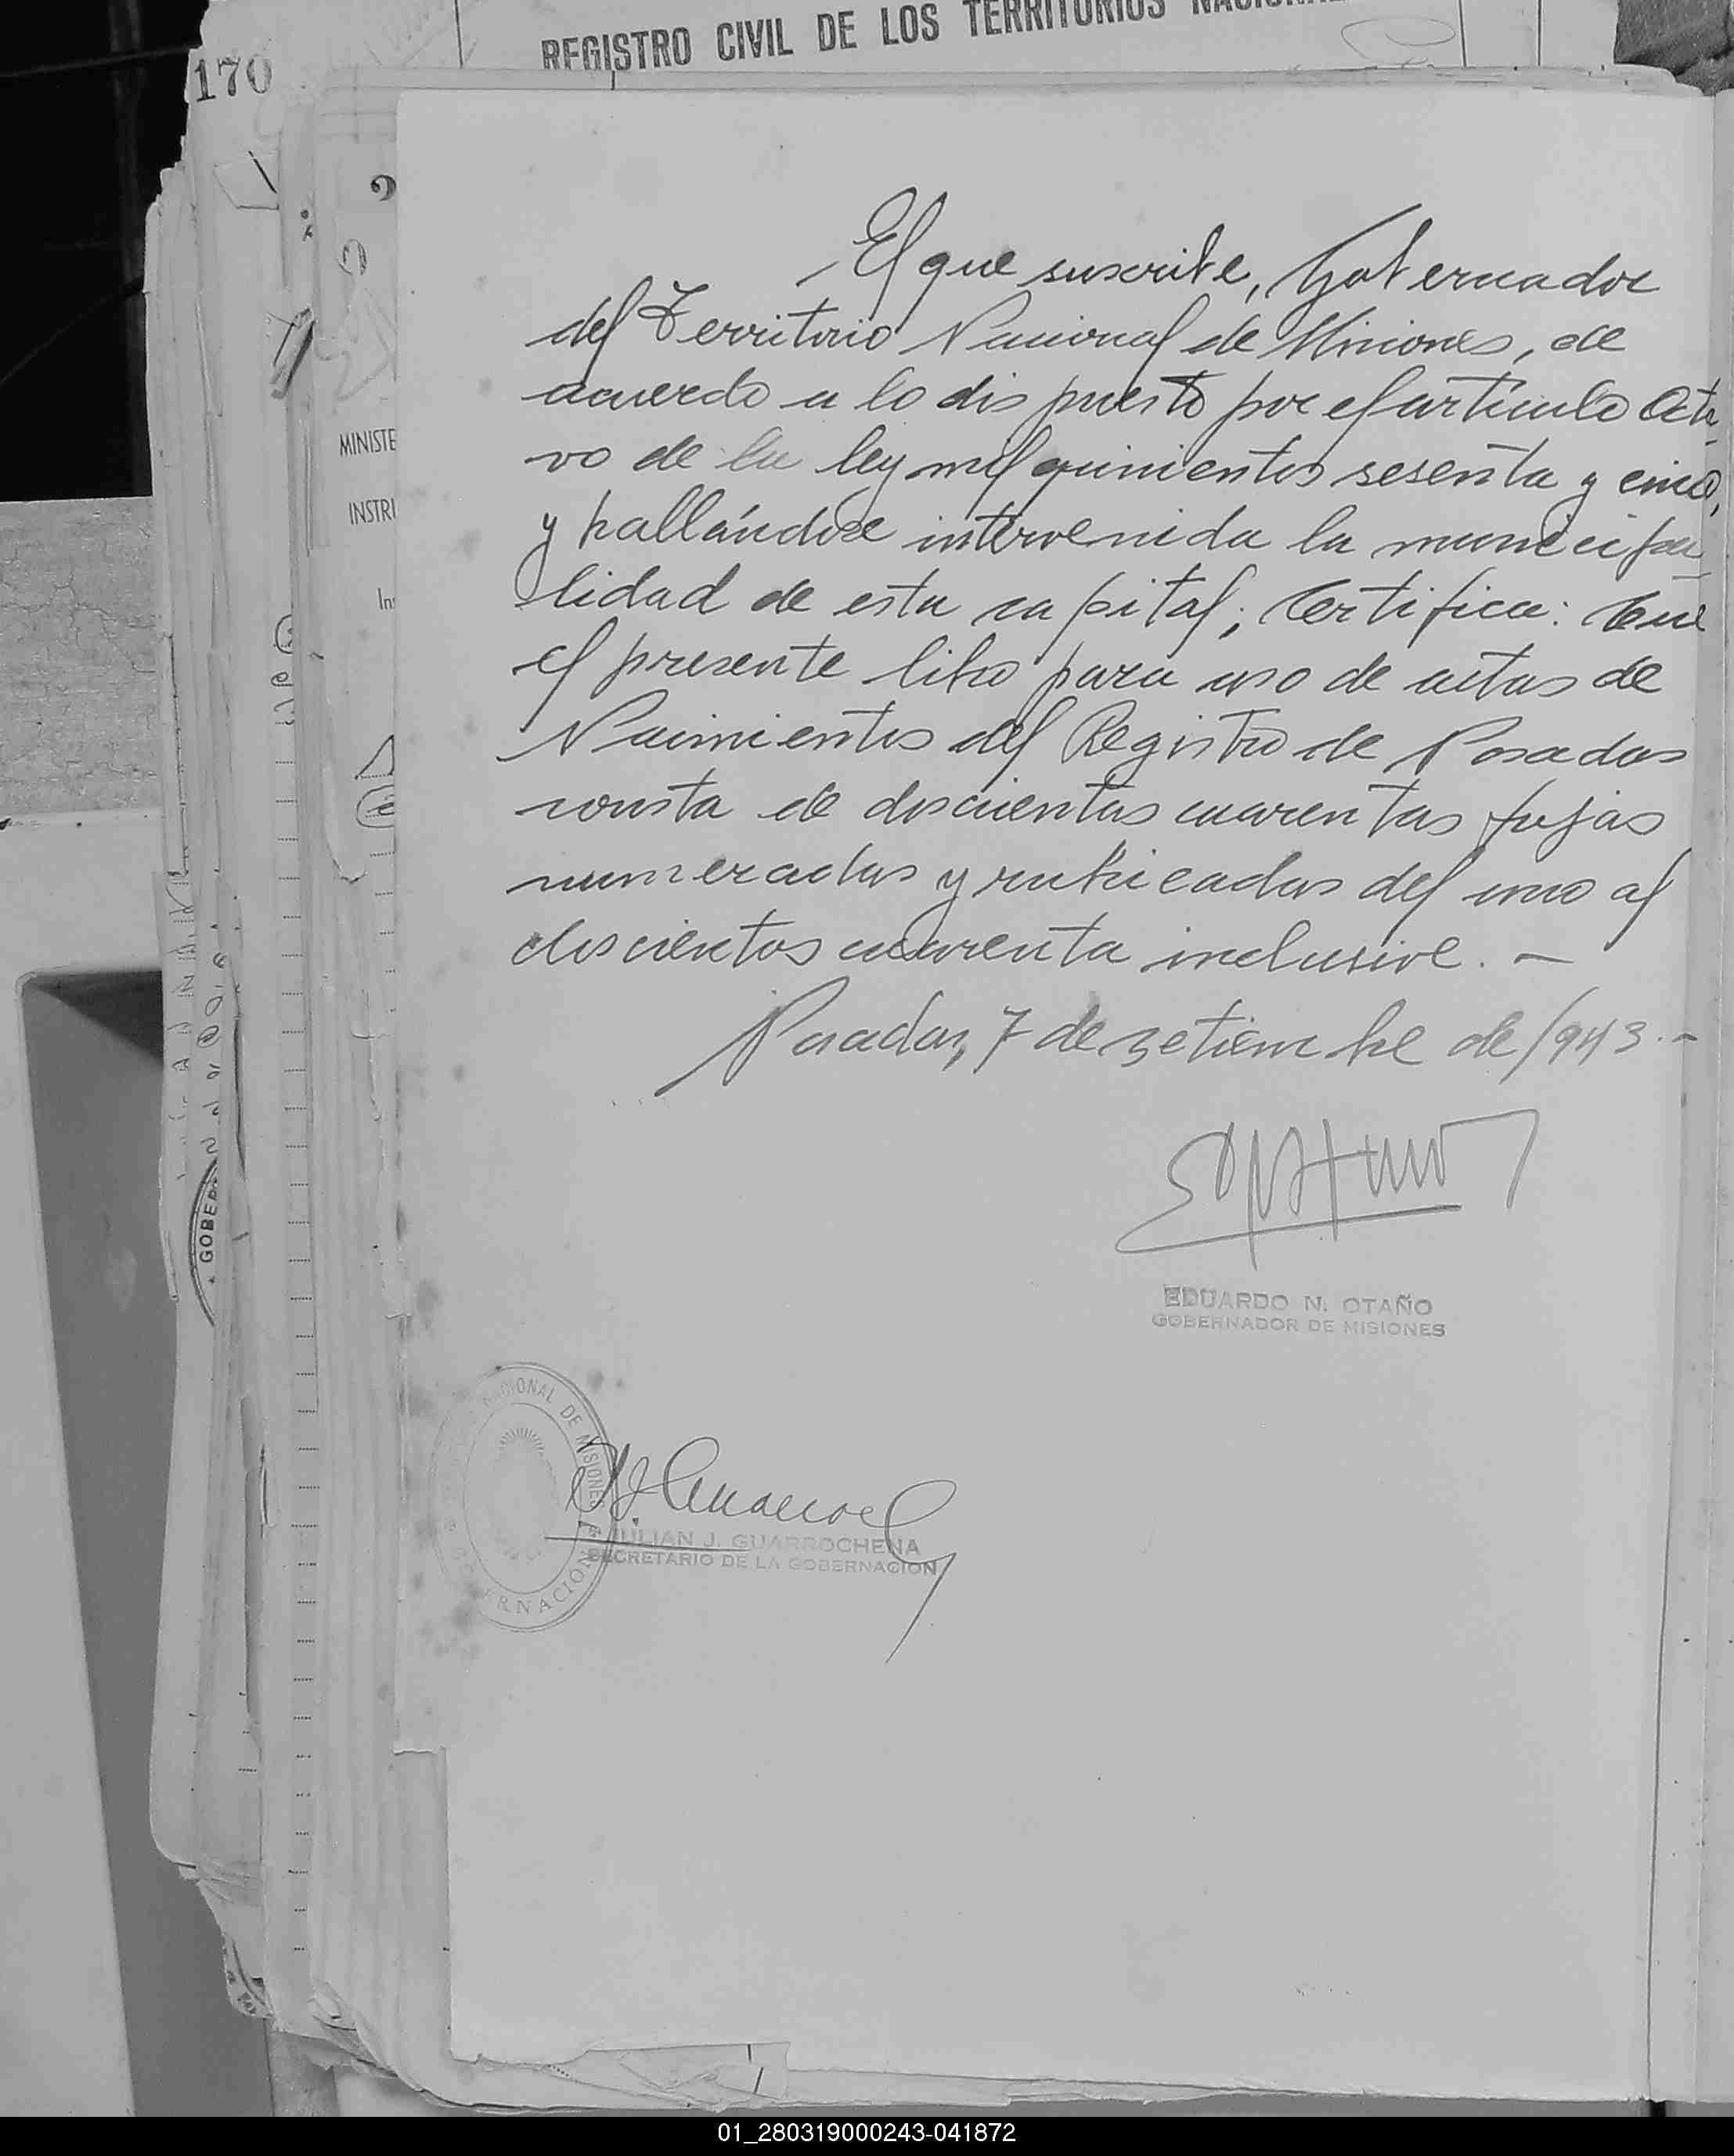 REGISTRO CIVIL DE LOS TERRITORIOS
170
MINISTE
INSTRI
El que suscribe, Gobernador
del Territorio Nacional de Misiones, de
acuerdo a lo dispuesto por el artículo octa
vo de la ley mil quinientos sesenta y cinco,
y hallándose intervenida la municipa
lidad de esta capital; Certifica: Que
el presente libro para uso de actas de
Nacimientos del Registro de Posadas
consta de doscientas cuarentas fojas
numeradas y rubricadas del uno al
doscientos cuarenta inclusive. —
Posadas, 7 de setiembre de 1943.-
EDUARDO N. OTAÑO
GOBERNADOR DE MISIONES
NACIONAL DE MISIONES
JULIAN J. GUARROCHENA
SECRETARIO DE LA GOBERNACION
GOBER
01_280319000243-041872